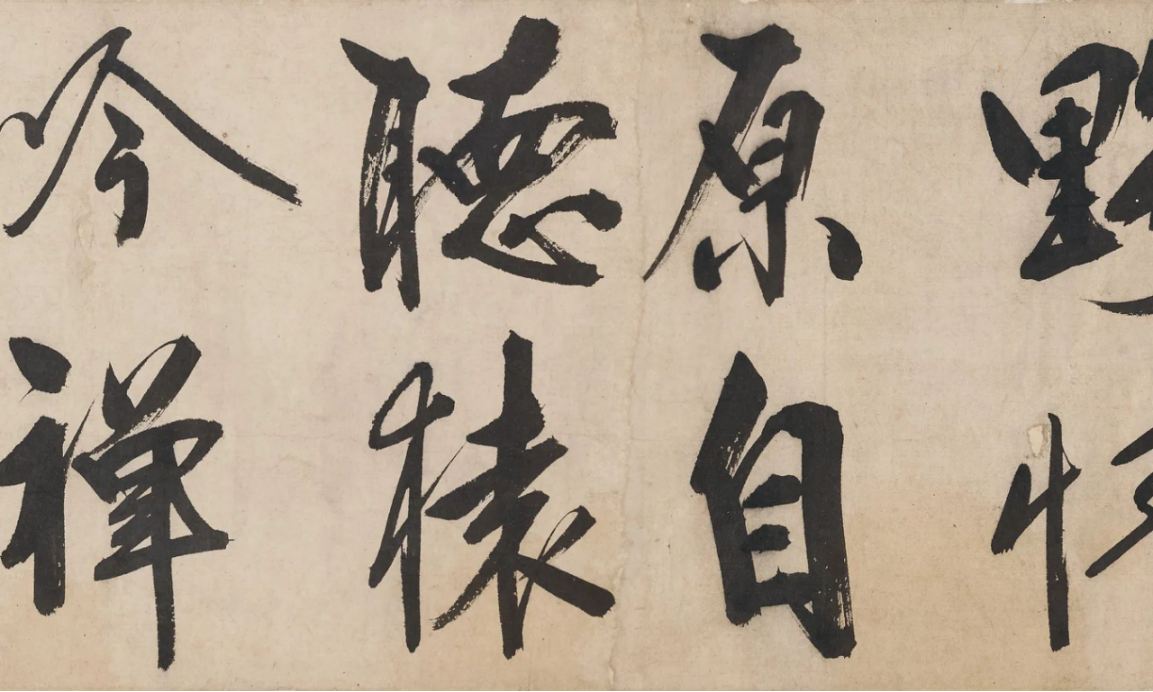 野
原自
聽猿
吟禪